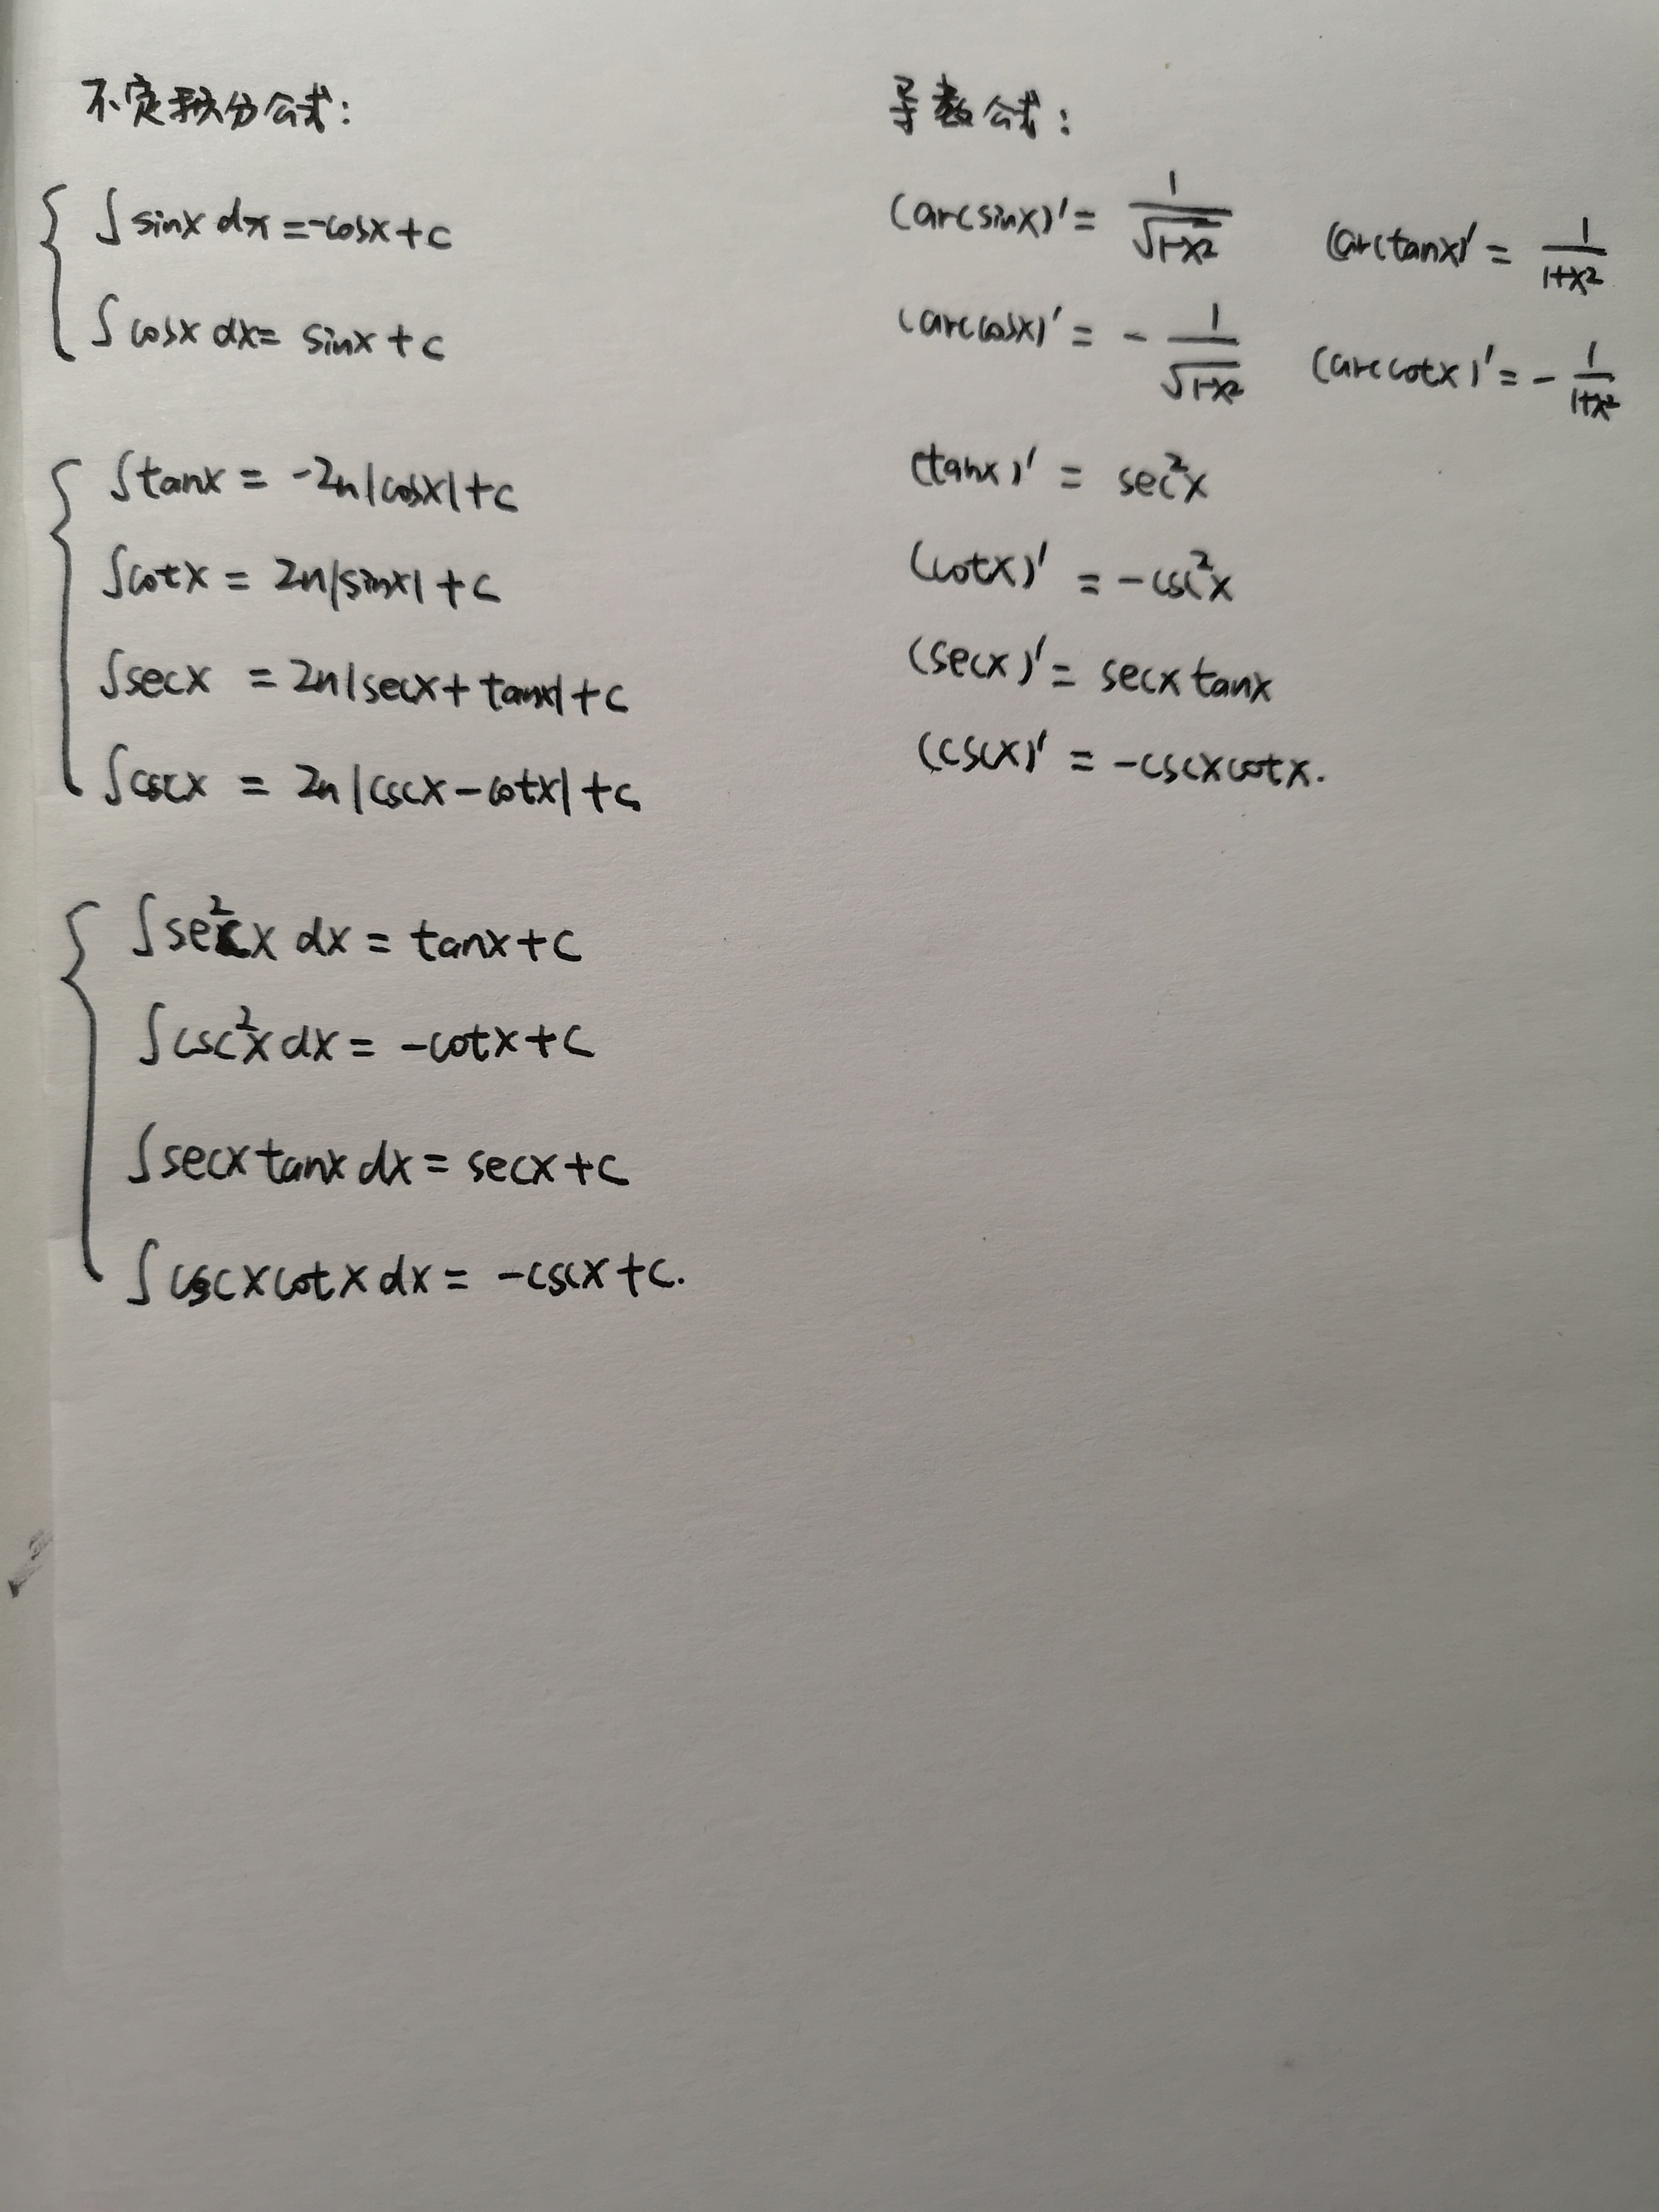 不定积分公式:
∫sinx dx=-cosx+c
∫cosx dx= sinx+c
∫tanx = -ln|cosx|+c
∫cotx = ln|sinx|+c
∫secx = ln|secx+tanx|+c
∫cscx = ln|cscx-cotx|+c
∫sec²x dx = tanx+c
∫csc²x dx = -cotx+c
∫secxtanx dx = secx+c
∫cscxcotx dx = -cscx+c.
导数公式:
(arcsinx)'= 1/√(1-x²) (arctanx)' = 1/(1+x²)
(arccosx)' = - 1/√(1-x²) (arccotx)' = - 1/(1+x²)
(tanx)' = sec²x
(cotx)' = -csc²x
(secx)' = secxtanx
(cscx)' = -cscxcotx.